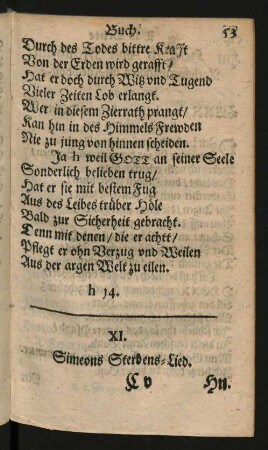 Buch. 53
Durch des Todes bittre Krafft
Von der Erden wird gerafft/
Hat er doch durch Witz vnd Tugend
Vieler Zeiten Lob erlangt.
Wer in diesem Zierrath prangt/
Kan hin in des Himmels Frewden
Nie zu jung von hinnen scheiden.
Ja h weil GOTT an seiner Seele
Sonderlich belieben trug/
Hat er sie mit bestem Fug
Aus des Leibes trüber Höle
Bald zur Sicherheit gebracht.
Denn mit denen/ die er achtt/
Pflegt er ohn Verzug vnd Weilen
Aus der argen Welt zu eilen.
h 14.
XI.
Simeons Sterbens-Lied.
C v Hn.